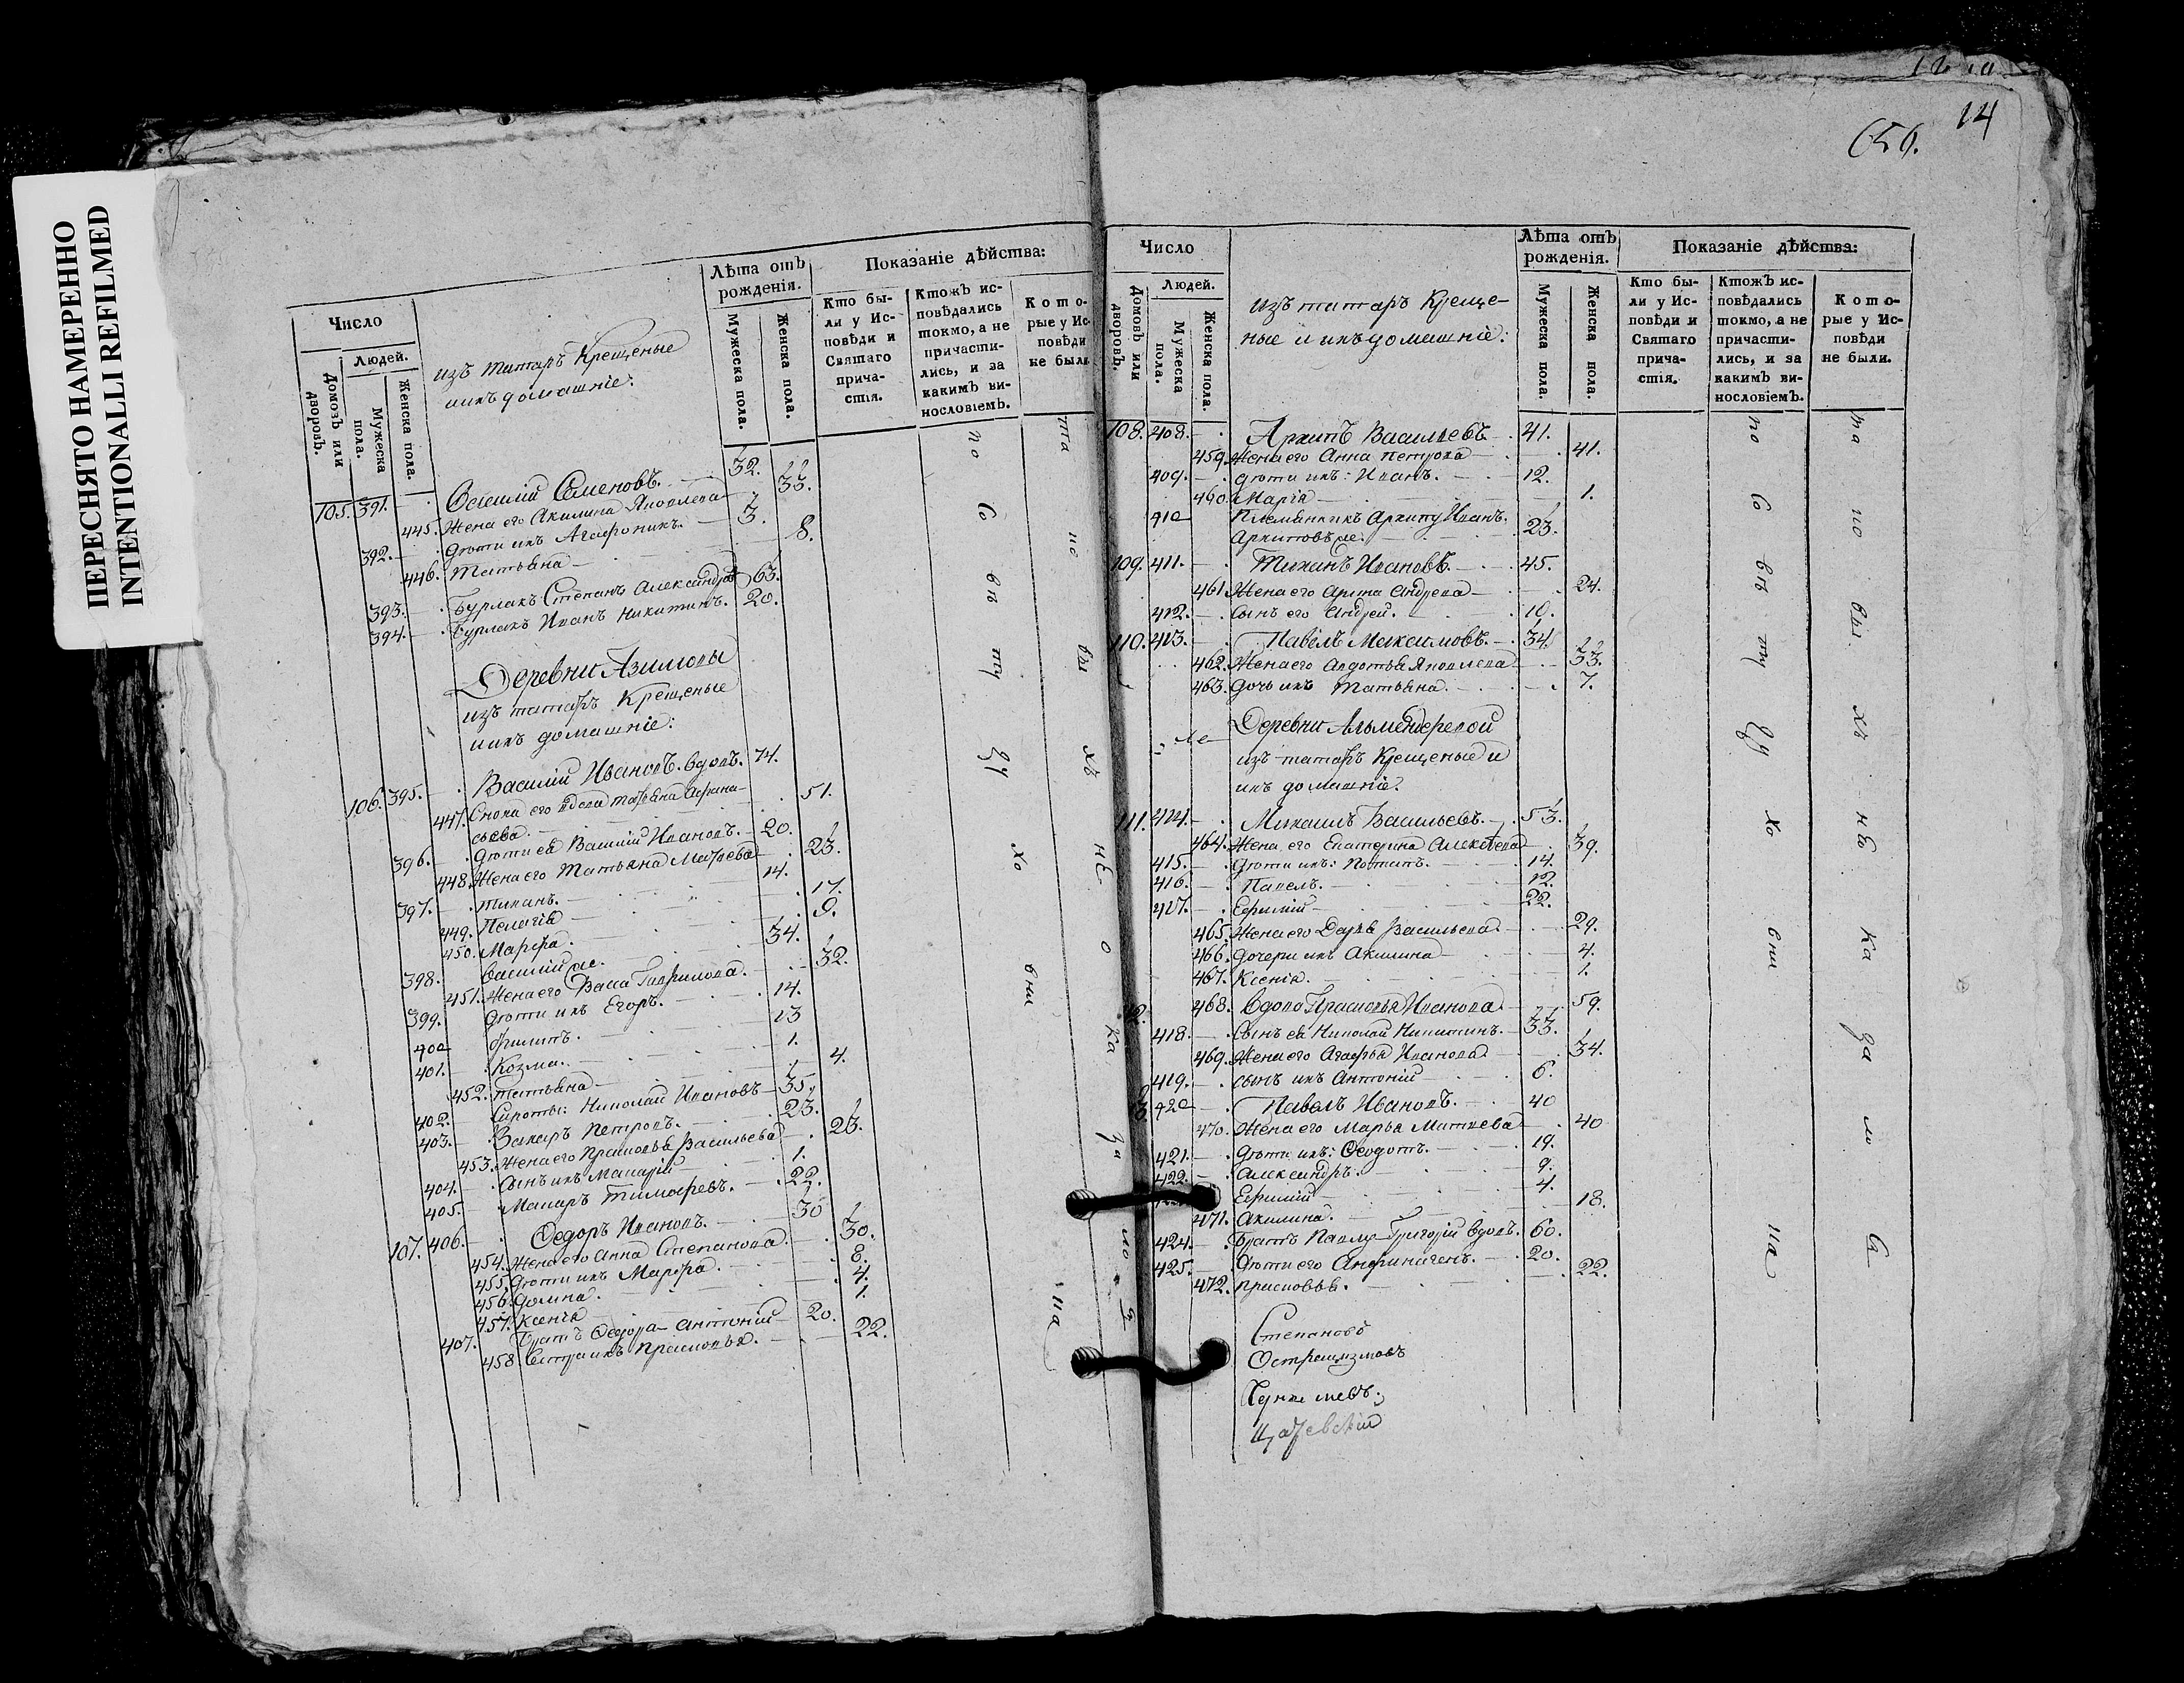 ПЕРЕСНЯТО НАМЕРЕННО
INTENTIONALLI REFILMED
Число
Людей.
Домовъ или дворовъ.
Мужеска пола.
Женска пола.
изъ татаръ Крещеные
иихъ домашніе:
Лѣта отъ рожденія.
Мужеска пола.
Женска пола.
Показаніе дѣйства:
Кто бы-
ли у Ис-
повѣди и
Святаго
прича-
стія.
Ктожъ ис-
повѣдались
токмо, а не
причасти-
лись, и за
какимъ ви-
нословіемъ.
Кото-
рые у Ис-
повѣди
не были.
105. 391. Семеновъ. 32.
445. Жена его Акилина Яковлева 33.
392. Дѣти ихъ Агафоникъ. 3.
446. Татьяна 8.
393. Бурлакъ Степанъ Александровъ 63.
394. Бурлакъ Иванъ Никитинъ. 20.
Деревни Азимовы
изъ татаръ Крещеные
иихъ домашніе:
106. 395. Василій Ивановъ. вдовъ. 74.
447. Сноха его вдова Татьяна Афана-
сьева. 51.
396. Дѣти ея Василій Ивановъ. 20.
448. Жена его Татьяна Матѳева 23.
397. Тиханъ. 14.
449. Пелагія 17.
450. Марфа. 9.
398. Василій же. 34.
451. Жена его Васса Гаврилова. 32.
399. Дѣти ихъ Егоръ. 14.
400 Филипъ. 13
401. Козма. 1.
452. Татьяна 4.
402. Сироты: Николай Ивановъ 35.
403. Захаръ Петровъ. 23.
453. Жена его Прасковья Васильева 23.
404. Сынъ ихъ Макарій 1.
405. Макаръ Тимофеевъ. 22.
107. 406. Ѳедоръ Ивановъ. 30
454. Жена его Анна Степанова. 30.
455. Дѣти ихъ Марфа. 8.
456. Домна. 4.
457. Ксенія 1.
407. Братъ Ѳедора Антоній 20.
458 Сестра ихъ Прасковья. 22.
14
Число
Людей.
Домовъ или дворовъ.
Мужеска пола.
Женска пола.
Изъ татаръ Креще-
ные и ихъ домашніе:
Лѣта отъ рожденія.
Мужеска пола.
Женска пола.
Показаніе дѣйства:
Кто бы-
ли у Ис-
повѣди и
Святаго
прича-
стія.
Ктожъ ис-
повѣдались
токмо, а не
причасти-
лись, и за
какимъ ви-
нословіемъ.
Кото-
рые у Ис-
повѣди
не были.
108. 408. Архипъ Васильевъ 41.
459. Жена его Анна Петрова 41.
409. Дѣти ихъ: Иванъ. 12.
460. Марія 1.
410 Племянникъ Архипу Иванъ.
Архиповъ же. 23.
109. 411. Тиханъ Ивановъ. 45.
461. Жена его Арина Андреева 24.
412. Сынъ его Андрей. 10.
110. 413. Павелъ Максимовъ. 34.
462. Жена его Авдотья Яковлева 33.
463. Дочь ихъ Татьяна. 7.
Деревни Альмендеровой
изъ татаръ Крещеные и
ихъ домашніе.
111. 414. Михаилъ Васильевъ. 53.
464. Жена его Екатерина Алексѣева 39.
415. Дѣти ихъ: Потапъ. 14.
416. Павелъ. 12.
417. Ефимій 22.
465. Жена его Дарья Васильева. 29.
466. Дочери ихъ Акилина 4.
467. Ксенія. 1.
468. Вдова Прасковья Иванова 59.
418. Сынъ ея Николай Никитинъ. 33.
469. Жена его Агафья Иванова 34.
419. Сынъ ихъ Антоній 6.
420 Павелъ Ивановъ. 40
470. Жена его Марья Матвеева 40
421. Дѣти ихъ: Ѳеодотъ. 19.
422. Александръ. 9.
Ефимій 4.
471. Акилина. 18.
424. Братъ Павлу Григорій вдовъ. 60.
425. Дѣти его Анфиногенъ. 20.
472. Прасковья. 22.
Степаново